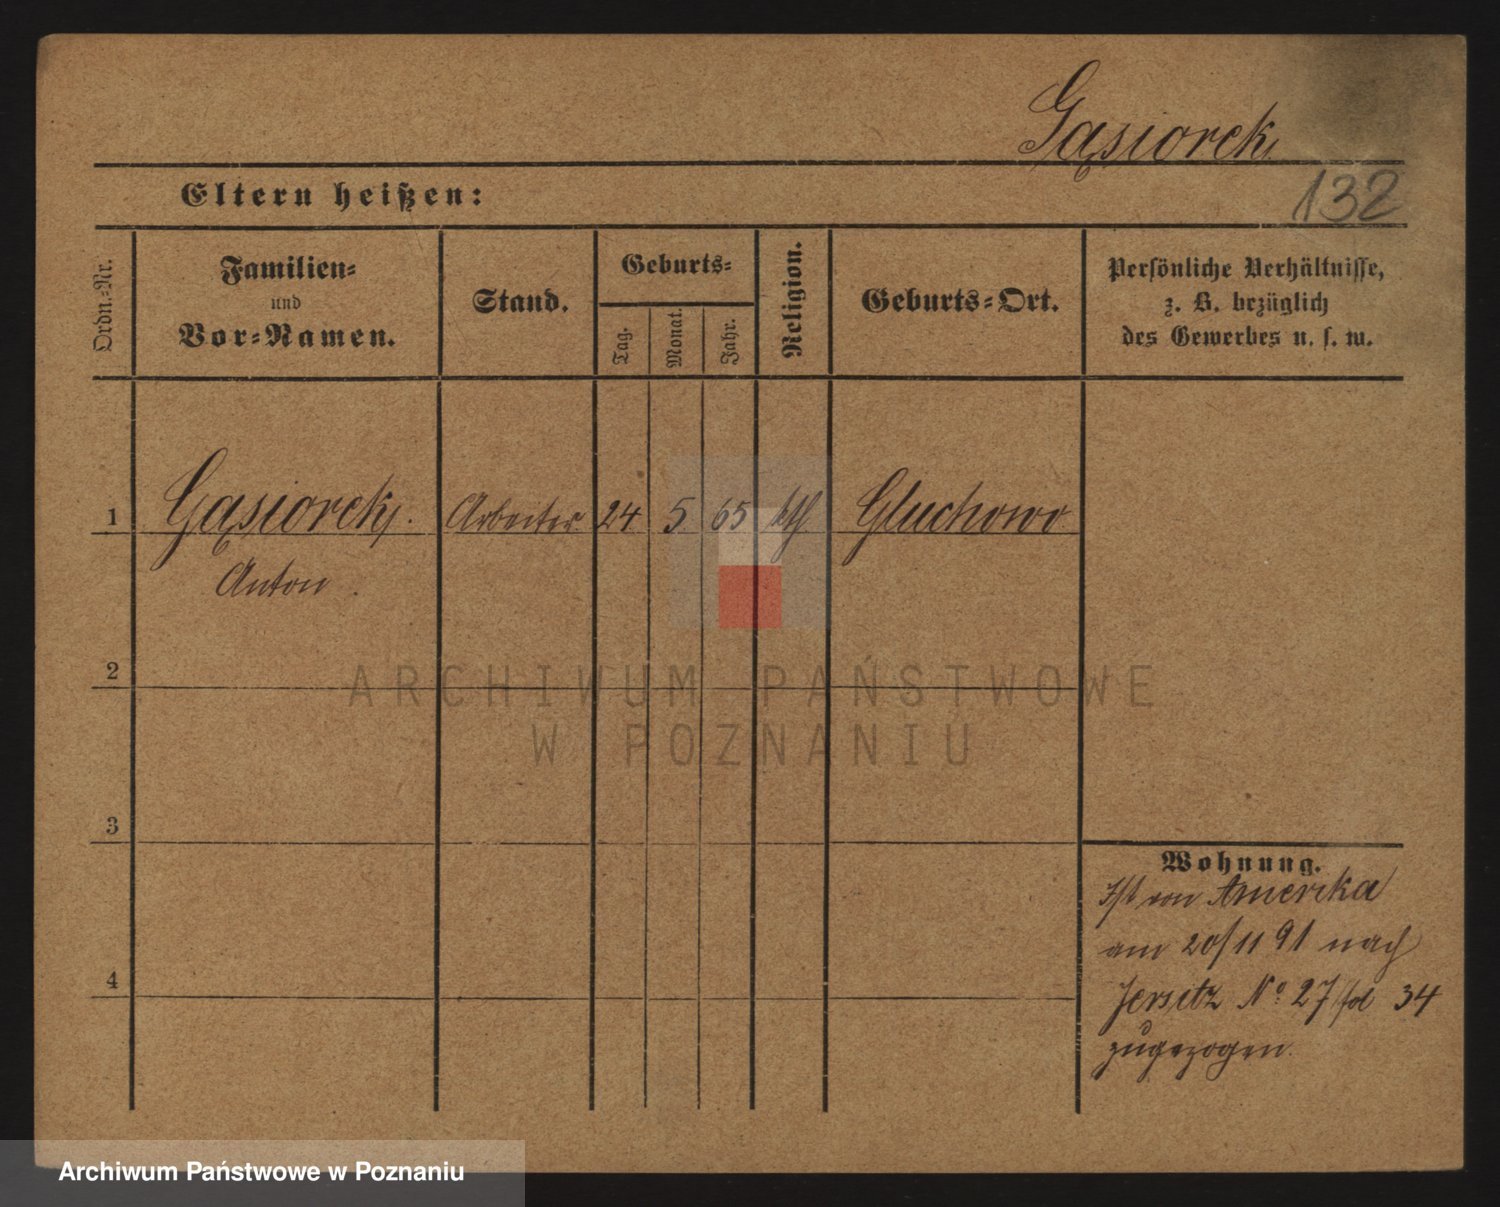 Gąsiorek
132
Eltern heißen:
Ordn.-Nr.
Familien-
und
Vor-Namen.
Stand.
Geburts-
Tag.
Monat.
Jahr.
Religion.
Geburts-Ort.
Persönliche Verhältnisse,
z. B. bezüglich
des Gewerbes u. s. w.
1 Gąsiorek. Arbeiter 24 5 65 kth Gluchowo
Anton.
2
3
4
Wohnung.
Ist von Amerika
am 20/11 91 nach
Jersitz No 27 fol 34
zugezogen.
ARCHIWUM PAŃSTWOWE
W POZNANIU
Archiwum Państwowe w Poznaniu